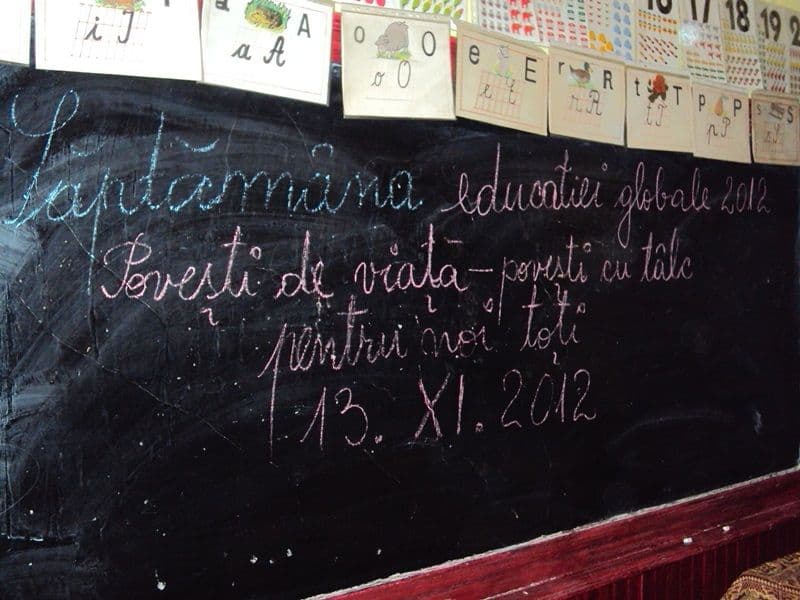 i I
a A
a A
o O
o O
e E
e E
r R
r R
t T
t T
p P
p P
s S
17 18 19
Săptămâna educatiei globale 2012
Povești de viață - povești cu tâlc
pentru noi toți
13. XI. 2012